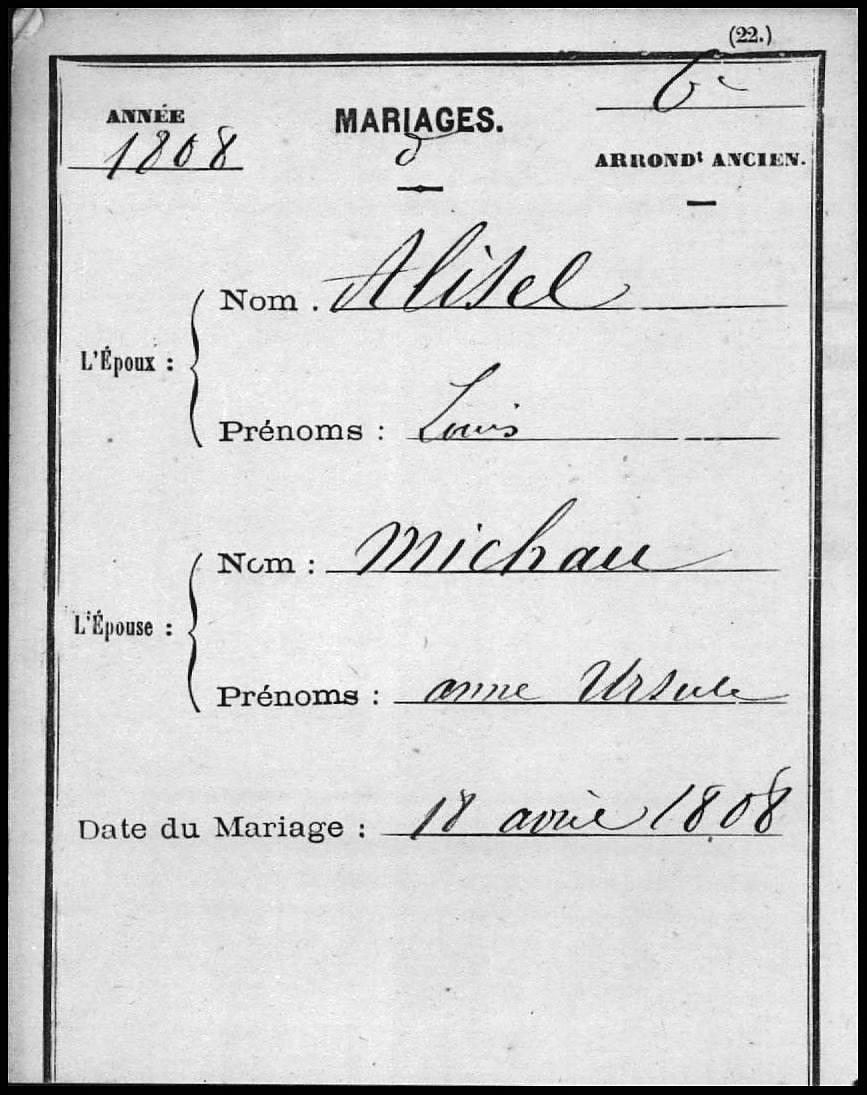 (22.)
ANNÉE
1808
MARIAGES.
6e
ARRONDt ANCIEN.
L'Époux :
Nom . Alisel
Prénoms : Louis
L'Épouse :
Nom : Michau
Prénoms : anne Ursule
Date du Mariage : 18 avril 1808